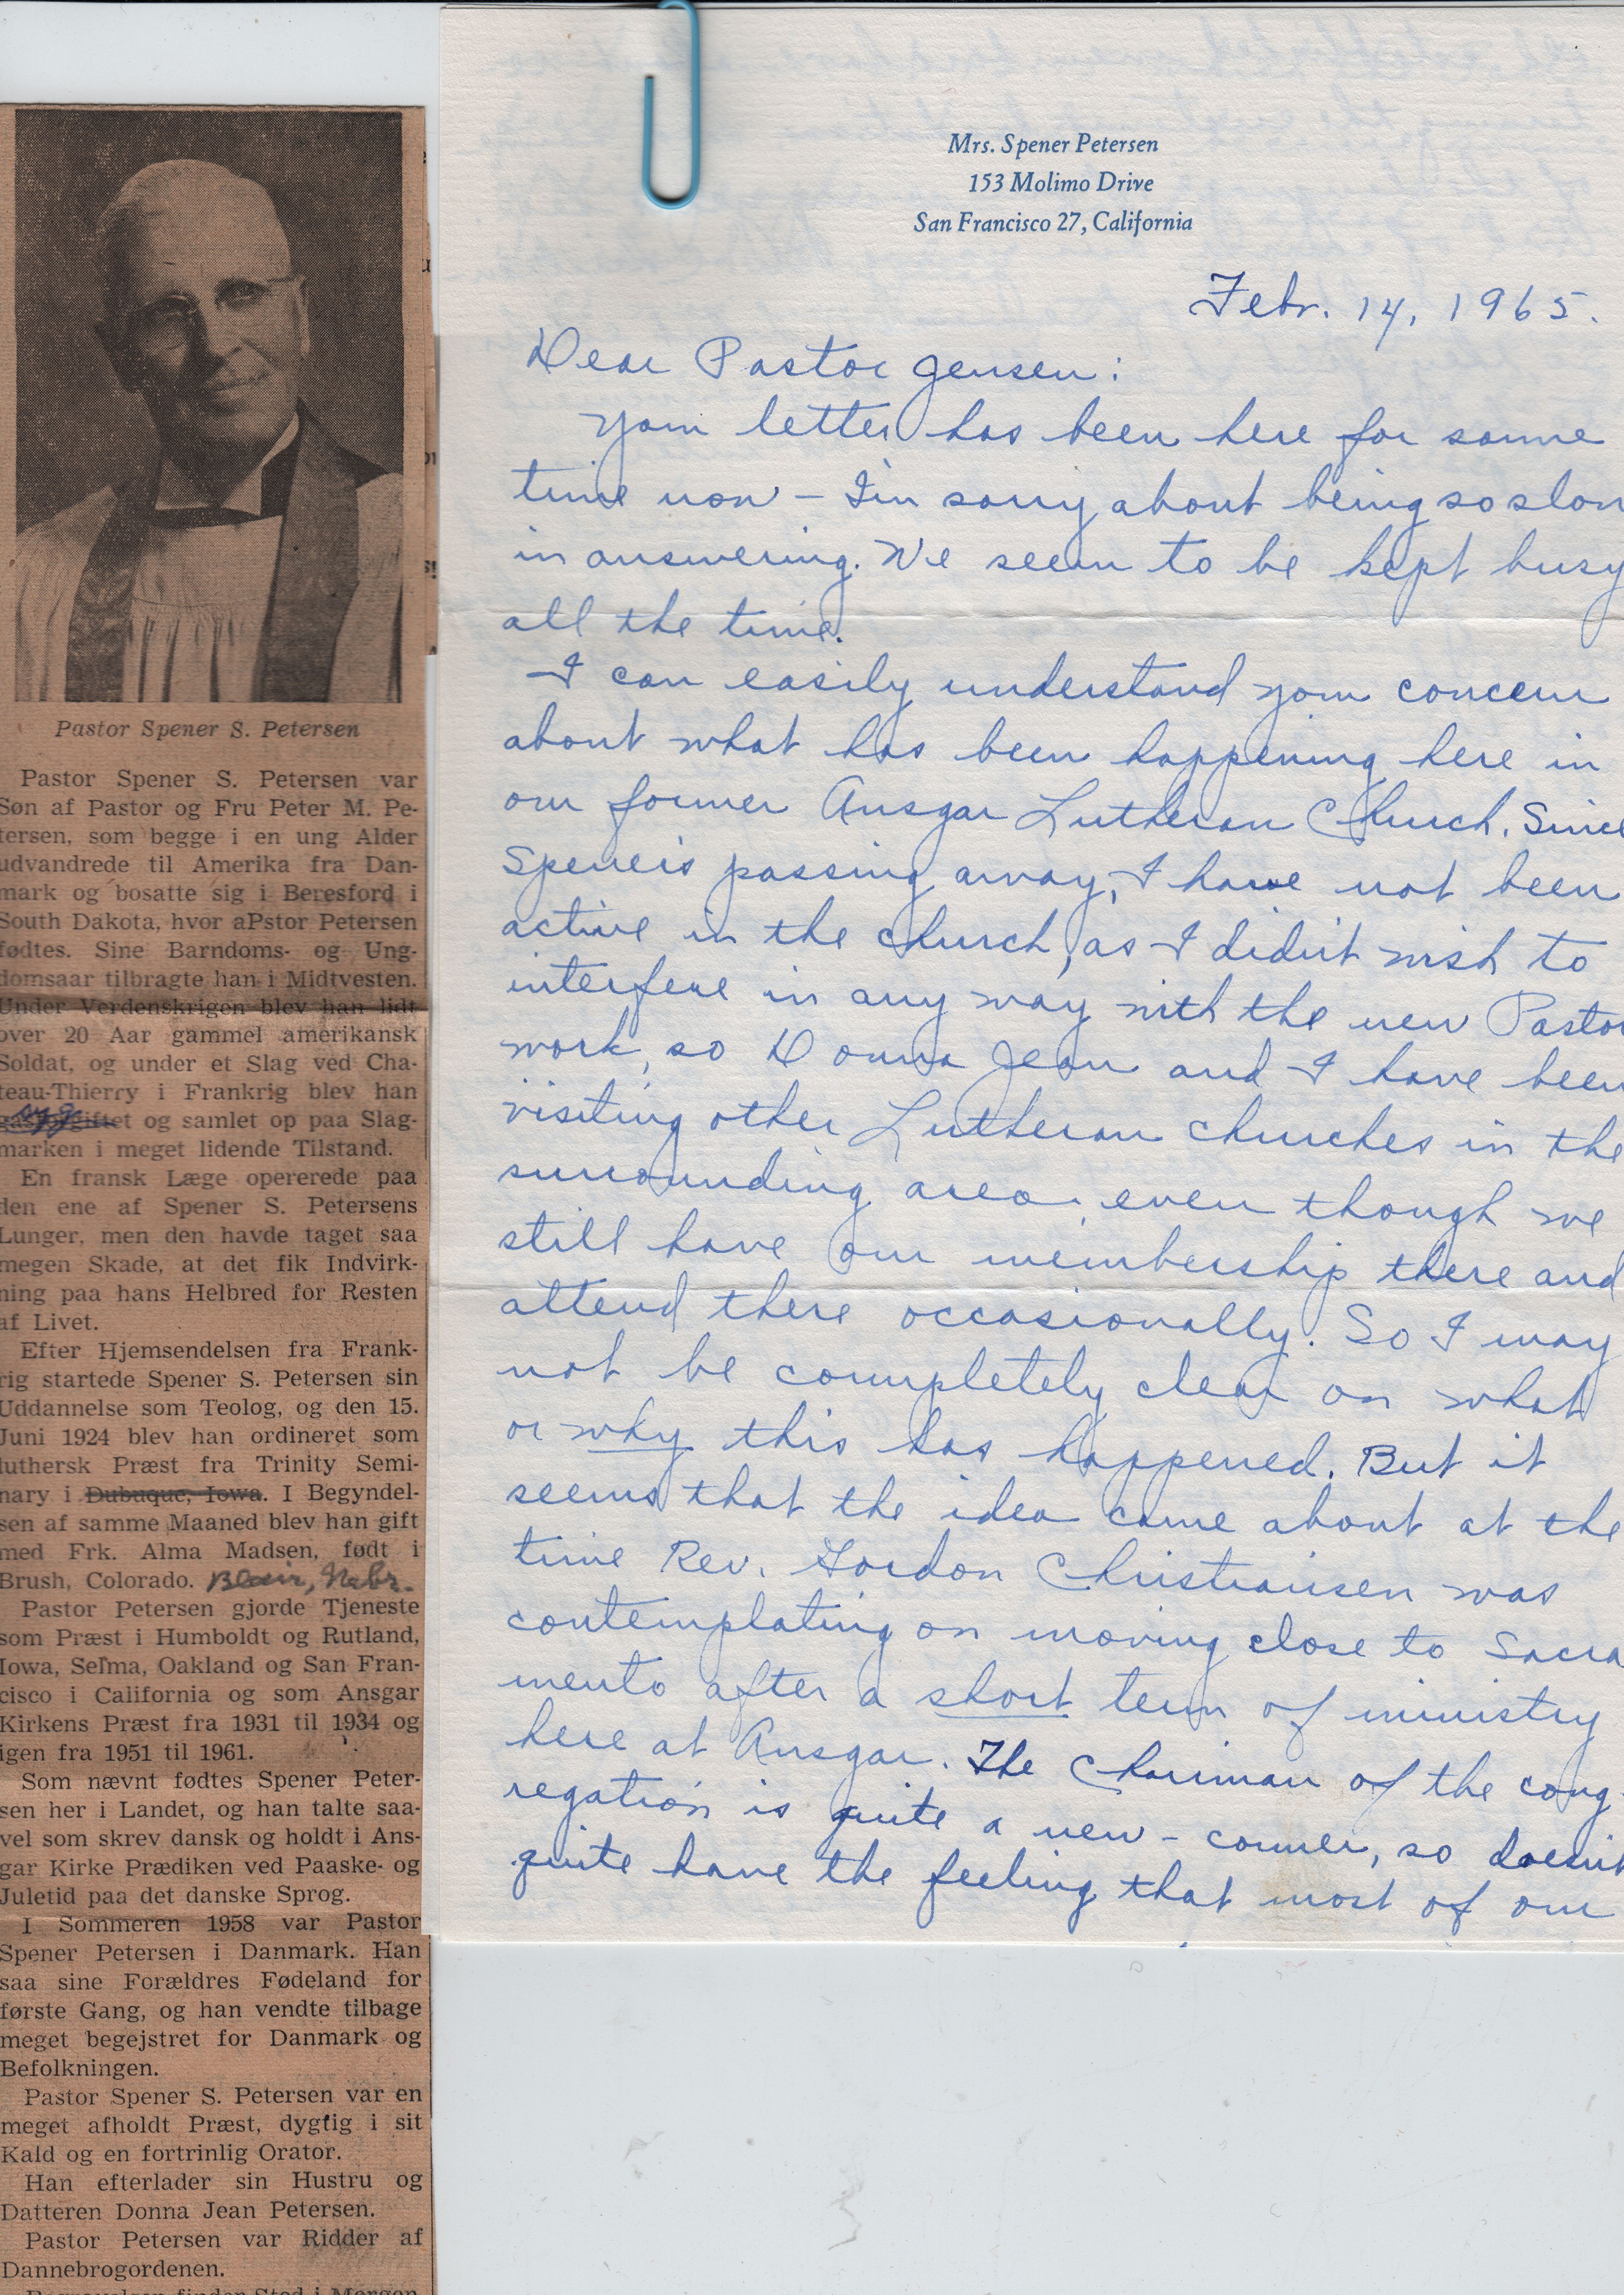 Pastor Spener S. Petersen
Pastor Spener S. Petersen var
Søn af Pastor og Fru Peter M. Pe-
tersen, som begge i en ung Alder
udvandrede til Amerika fra Dan-
mark og bosatte sig i Beresford i
South Dakota, hvor aPstor Petersen
fødtes. Sine Barndoms- og Ung-
domsaar tilbragte han i Midtvesten.
Under Verdenskrigen blev han lidt
over 20 Aar gammel amerikansk
Soldat, og under et Slag ved Cha-
teau-Thierry i Frankrig blev han
gasforgiftet og samlet op paa Slag-
syg
marken i meget lidende Tilstand.
En fransk Læge opererede paa
den ene af Spener S. Petersens
Lunger, men den havde taget saa
megen Skade, at det fik Indvirk-
ning paa hans Helbred for Resten
af Livet.
Efter Hjemsendelsen fra Frank-
rig startede Spener S. Petersen sin
Uddannelse som Teolog, og den 15.
Juni 1924 blev han ordineret som
luthersk Præst fra Trinity Semi-
nary i Dubuque, Iowa. I Begyndel-
sen af samme Maaned blev han gift
med Frk. Alma Madsen, født i
Brush, Colorado. Blair, Nebr.
Pastor Petersen gjorde Tjeneste
som Præst i Humboldt og Rutland,
Iowa, Selma, Oakland og San Fran-
cisco i California og som Ansgar
Kirkens Præst fra 1931 til 1934 og
igen fra 1951 til 1961.
Som nævnt fødtes Spener Peter-
sen her i Landet, og han talte saa-
vel som skrev dansk og holdt i Ans-
gar Kirke Prædiken ved Paaske- og
Juletid paa det danske Sprog.
I Sommeren 1958 var Pastor
Spener Petersen i Danmark. Han
saa sine Forældres Fødeland for
første Gang, og han vendte tilbage
meget begejstret for Danmark og
Befolkningen.
Pastor Spener S. Petersen var en
meget afholdt Præst, dygtig i sit
Kald og en fortrinlig Orator.
Han efterlader sin Hustru og
Datteren Donna Jean Petersen.
Pastor Petersen var Ridder af
Dannebrogordenen.
Mrs. Spener Petersen
153 Molimo Drive
San Francisco 27, California
Febr. 14, 1965.
Dear Pastor Jensen:
Your letter has been here for some
time now – I'm sorry about being so slow
in answering. We seem to be kept busy
all the time.
I can easily understand your concern
about what has been happening here in
our former Ansgar Lutheran Church. Since
Spener's passing away, I have not been
active in the church, as I didn't wish to
interfere in any way with the new Pastor
work, so Donna Jean and I have been
visiting other Lutheran churches in the
surrounding area, even though we
still have our membership there and
attend there occasionally. So I may
not be completely clear on what
or why this has happened. But it
seems that the idea came about at the
time Rev. Gordon Christiansen was
contemplating on moving close to Sacra
mento after a short term of ministry
here at Ansgar. The Chairman of the cong-
regation is quite a new-comer, so doesn't
quite have the feeling that most of our